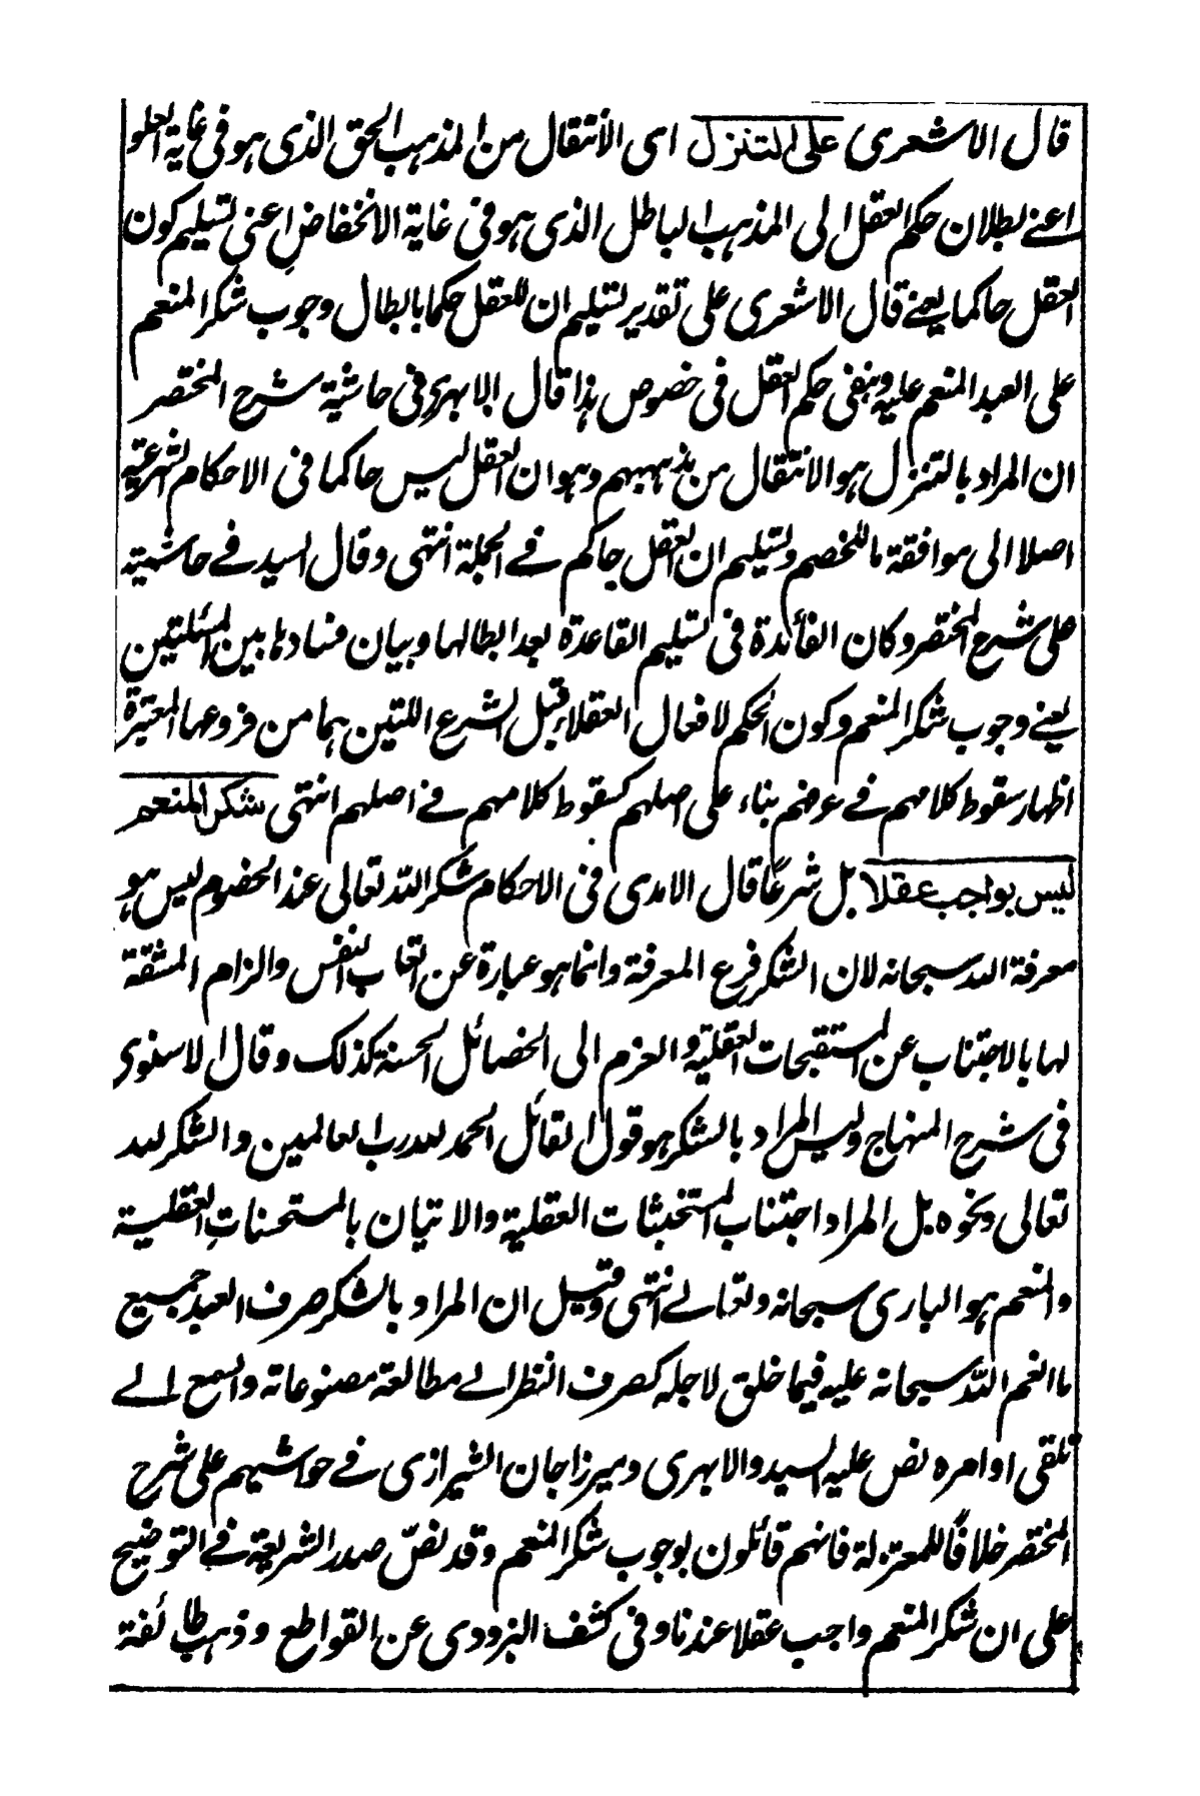 قال الاشعرى على التنزل اى الانتقال من المذهب الحق الذى هو فى غاية العلو
اعنے بطلان حكم العقل الى المذهب الباطل الذى هو فى غاية الانخفاضِ اعنى تسليم كون
العقل حاكما يعنے قال الاشعرى على تقدير تسليم ان للعقل حكما بابطال وجوب شكر المنعم
على العبد المنعم عليه وبنفى حكم العقل فى خصوص هذا قال الابهرى فى حاشية شرح المختصر
ان المراد بالتنزل هو الانتقال من مذهبهم وهو ان العقل ليس حاكما فى الاحكام الشرعية
اصلا الى موافقة ما للخصم وتسليم ان العقل حاكم فے الجملة انتهى وقال السيد فے حاشية
على شرح المختصر وكان الفائدة فى تسليم القاعدة بعد ابطالها وبيان فسادها بين المسئلتين
يعنے وجوب شكر المنعم وكون الحكم لافعال العقلاء قبل الشرع اللتين هما من فروعها المعتبرة
اظهار سقوط كلامهم فے بناء على اصلهم كسقوط كلامهم فے اصلهم انتهى شكر المنعم
ليس بواجب عقلا بل شرعًا قال الامدى فى الاحكام شكر الله تعالى عند الخصوم ليس هو
معرفة الله سبحانه لان الشكر فرع المعرفة وانما هو عبارة عن اتعاب النفس والزام المشقة
لها بالاجتناب عن المستقبحات العقلية والعزم الى الخصائل الحسنة كذلك وقال الاسنوى
فى شرح المنهاج وليس المراد بالشكر هو قول القائل الحمد لله رب العالمين والشكر لله
تعالى ونحوه بل المراد اجتناب المستخبثات العقلية والاتيان بالمستحسناتِ العقلية
والمنعم هو البارى سبحانه وتعالے انتهى وقيل ان المراد بالشكر صرف العبد جميع
ما انعم الله سبحانه عليه فيما خلق لاجله كصرف النظر الے مطالعة مصنوعاته والسمع الے
تلقى اوامره نص عليه السيد والابهرى وميرزاجان الشيرازى فے حواشيهم على شرح
المختصر خلافًا للمعتزلة فانهم قائلون بوجوب شكر المنعم وقد نصّ صدر الشريعة فے التوضيح
على ان شكر المنعم واجب عقلا عندنا وفى كشف البزدوى عن القواطع وذهب طائفة